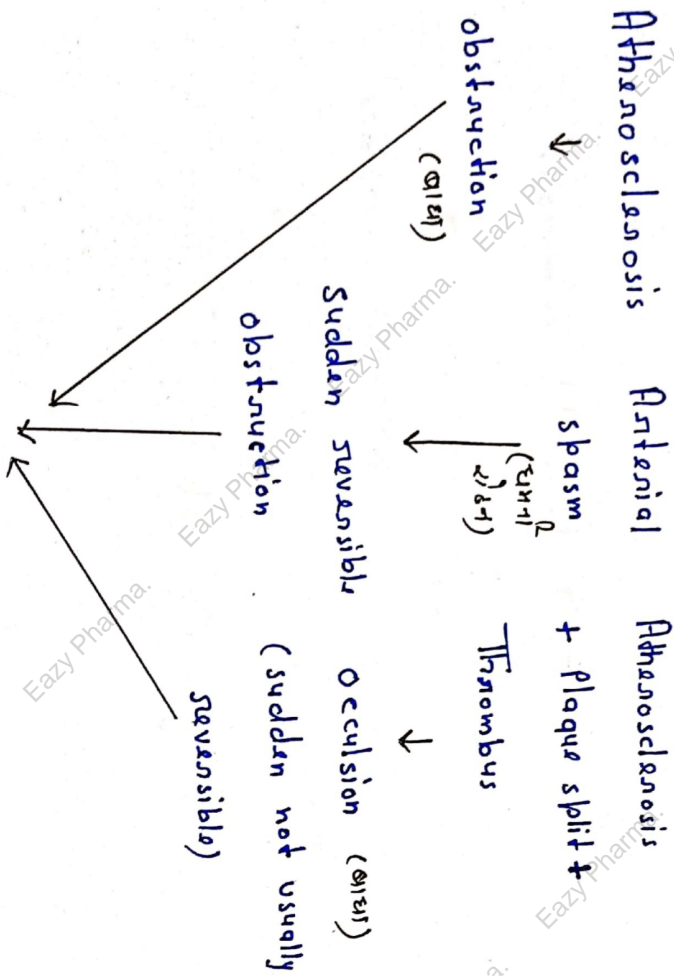 Atherosclerosis
↓
obstruction
(बाधा)
Arterial
spasm
Sudden reversible
obstruction
Atherosclerosis
+ Plaque split +
Thrombus
↓
Occulsion (बाधा)
(sudden not usually
reversible)
Eazy Pharma.
Eazy Pharma.
Eazy Pharma.
Eazy Pharma.
Eazy Pharma.
Eazy Pharma.
Eazy